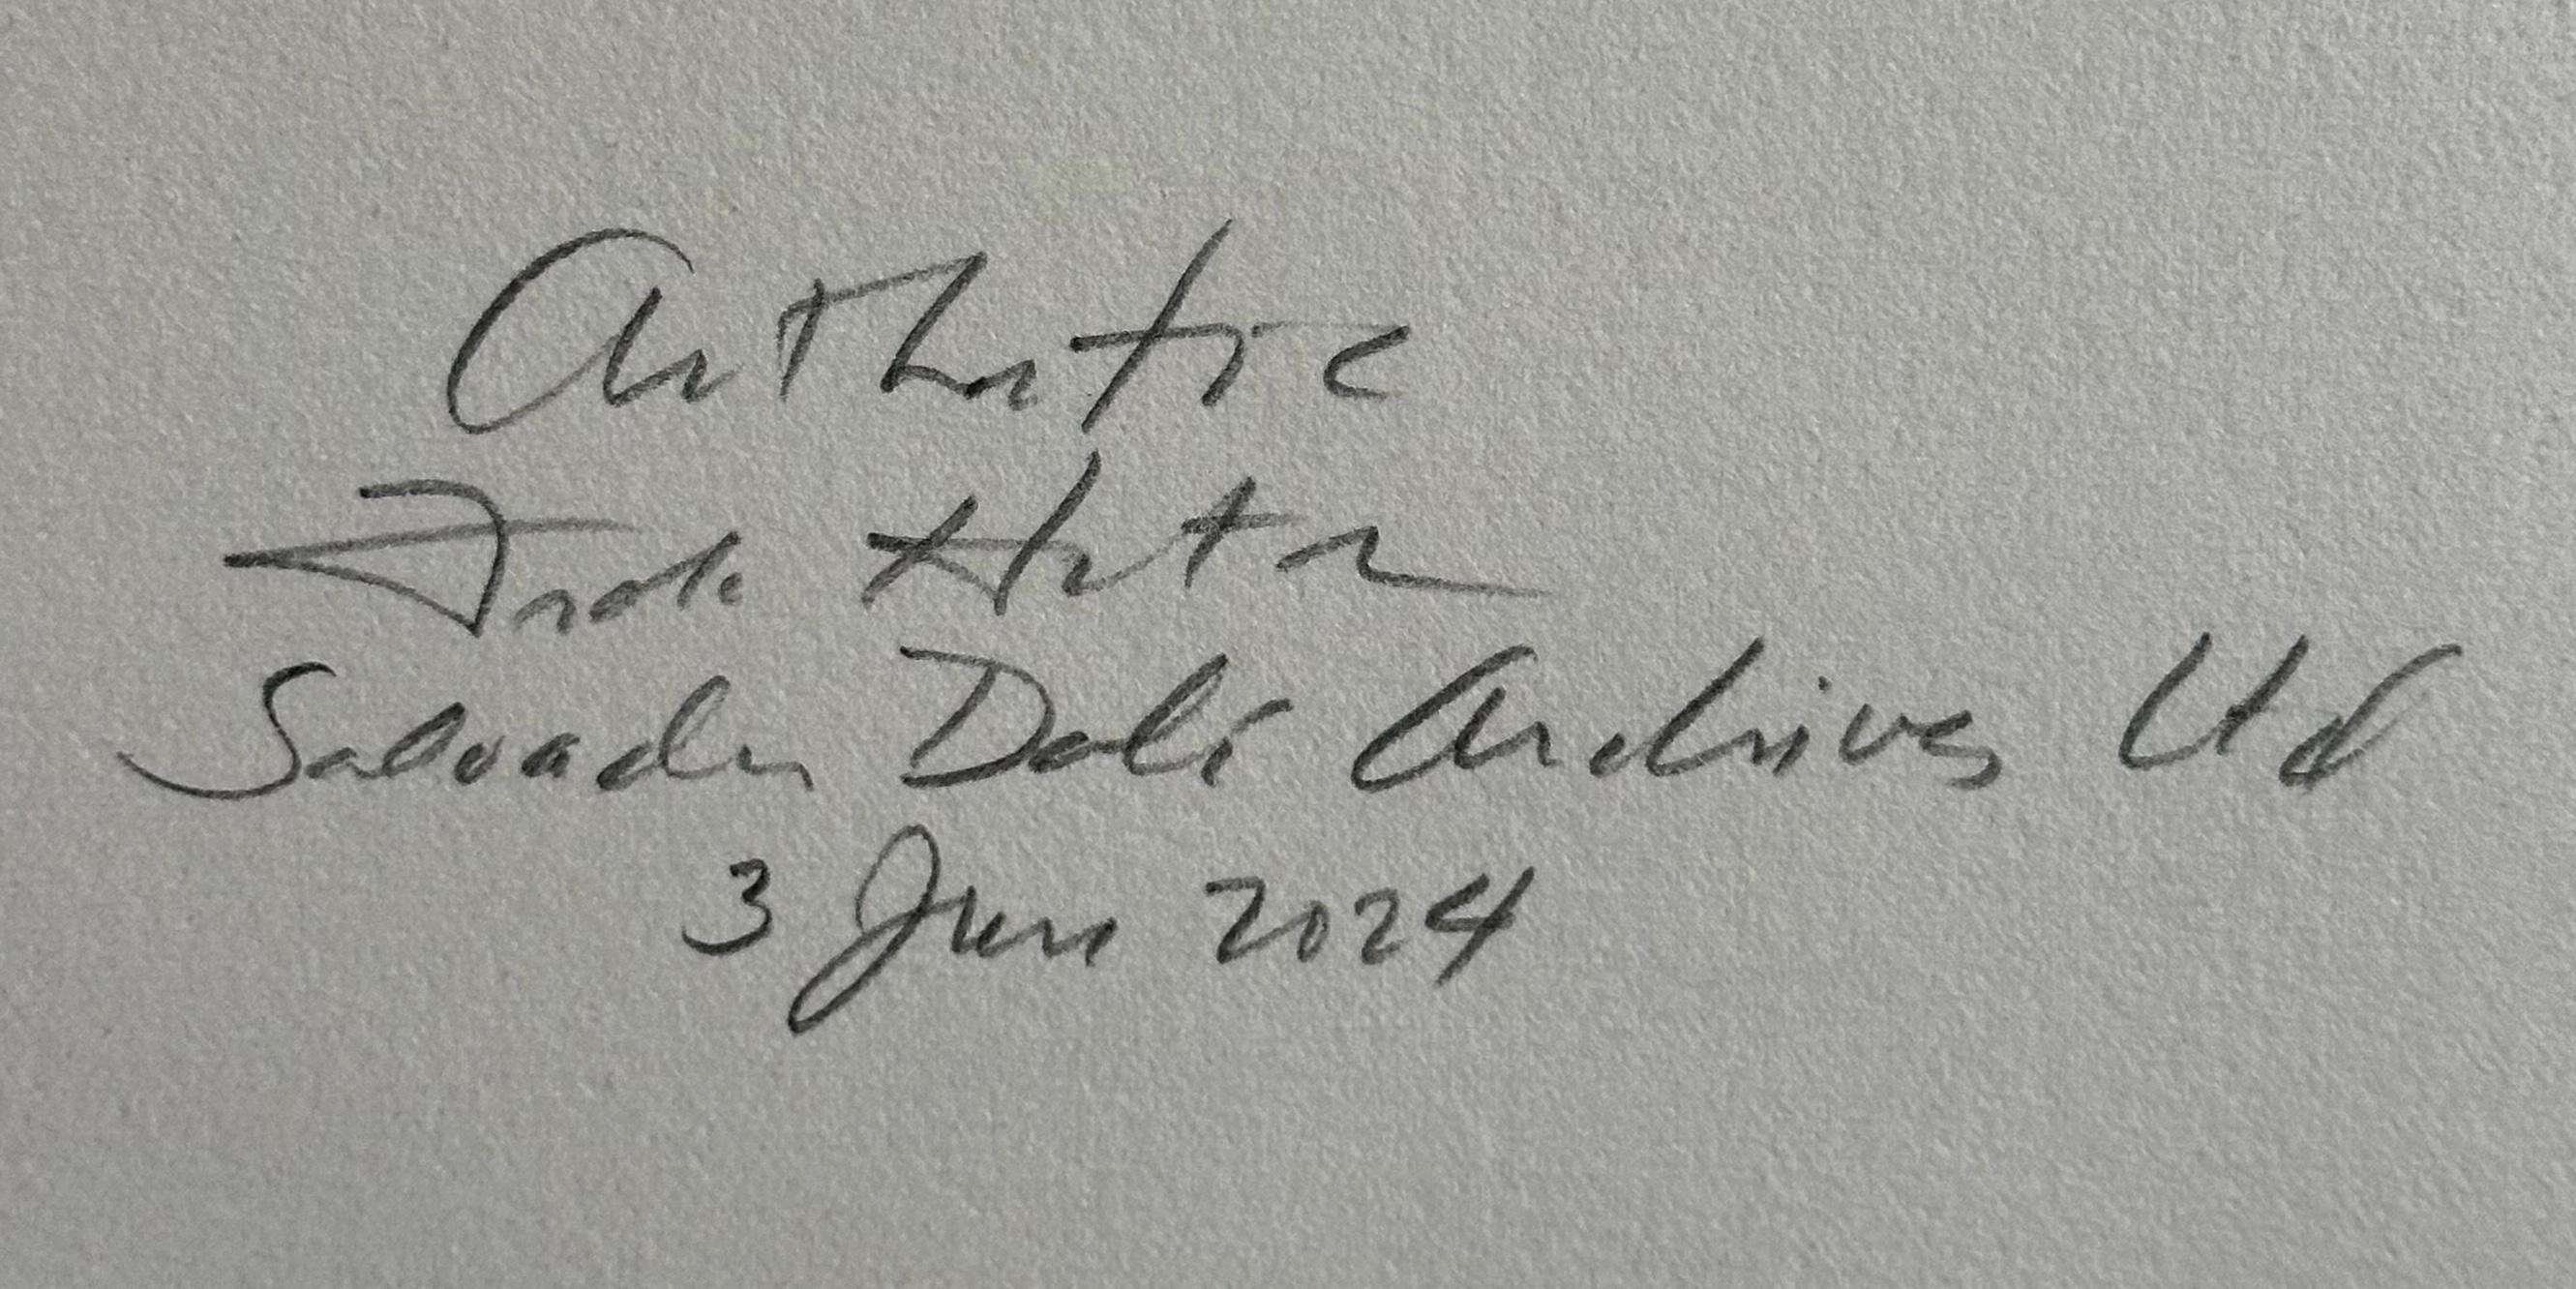 Authentic
Frank Hunter
Salvador Dali Archives Ltd
3 June 2024